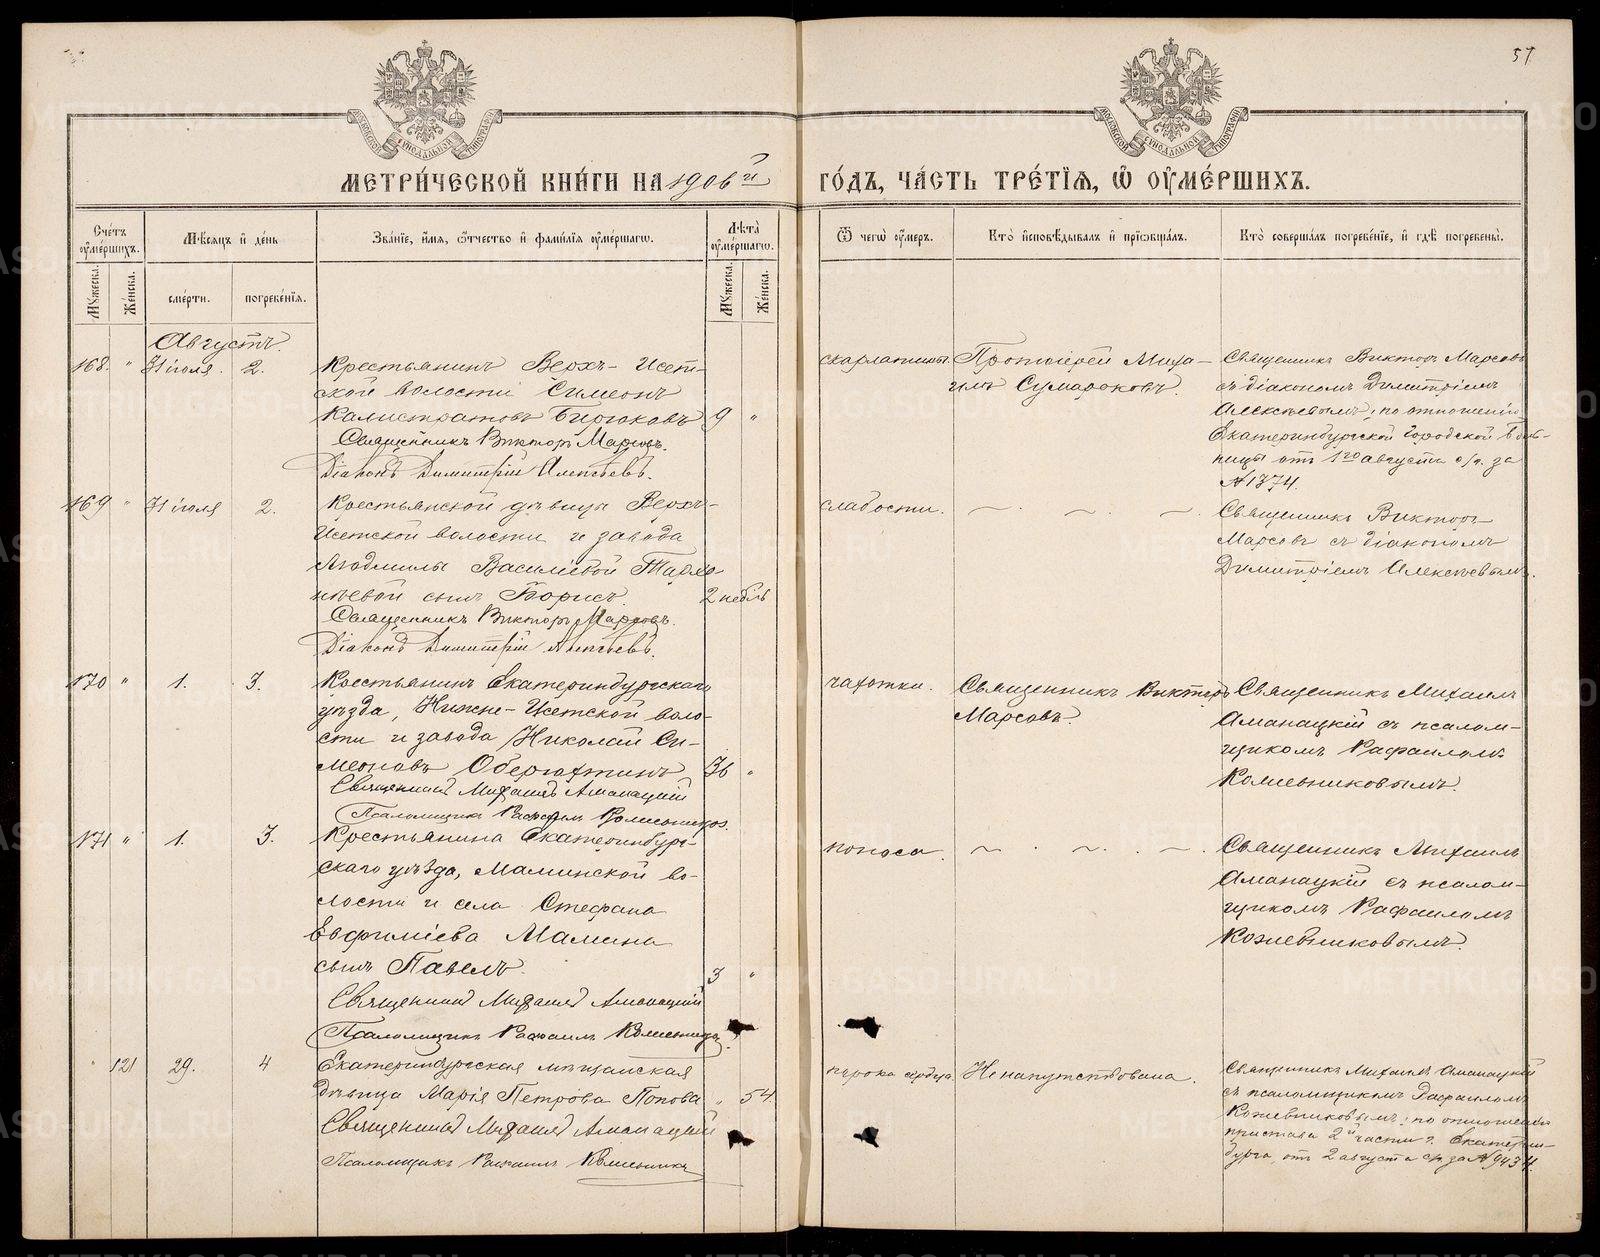 57
МЕТРИ́ЧЕСКОЙ КНИ́ГИ НА 1906й ГО́ДЪ, ЧА́СТЬ ТРЕ́ТІѦ, Ѽ ОУ҆МЕ́РШИХЪ.
Сче́тъ оу҆ме́ршихъ.
Мꙋ́жеска.
Же́нска.
Мѣ́сѧцъ и҆ де́нь
сме́рти.
погребе́нїѧ.
Зва́нїе, и҆́мѧ, ѻ҆́тчество и҆ фами́лїѧ оу҆ме́ршагѡ.
Лѣ́та оу҆ме́ршагѡ.
Мꙋ́жеска.
Же́нска.
Ѿ чегѡ̀ оу҆́меръ.
Кто̀ и҆сповѣ́дывалъ и҆ прїѡбща́лъ.
Кто̀ соверша́лъ погребе́нїе, и҆ гдѣ̀ погребены̀.
Августъ.
168. " 31 іюля. 2.
Крестьянинъ Верхъ-Исет-
ской волости Симеонъ
Калистратовъ Бирюковъ 9 "
Священникъ Викторъ Марсовъ.
Діаконъ Димитрій Алексѣевъ.
скарлатины.
Протоіерей Миха-
илъ Сумароковъ.
Священникъ Викторъ Марсовъ
съ діакономъ Димитріемъ
Алексѣевымъ, по отношенію
Екатеринбургской Городской боль-
ницы отъ 1го августа с/г. за
№ 1374.
169 " 31 іюля 2.
Крестьянской дѣвицы Верхъ-
Исетской волости и завода
Людмилы Василіевой
сынъ Борисъ. 2 недѣль
Священникъ Викторъ Марсовъ.
Діаконъ Димитрій Алексѣевъ.
слабости.
Священникъ Викторъ
Марсовъ съ діакономъ
Димитріемъ Алексѣевымъ.
170 " 1. 3.
Крестьянинъ Екатеринбургскаго
уѣзда, Нижне-Исетской воло-
сти и завода Николай Си-
меоновъ Оберюхтинъ 36 "
Священникъ Михаилъ Аманацкій
Псаломщикъ Рафаилъ Кожевниковъ.
чахотки.
Священникъ Викторъ
Марсовъ.
Священникъ Михаилъ
Аманацкій съ псалом-
щикомъ Рафаиломъ
Кожевниковымъ.
171 " 1. 3.
Крестьянина Екатеринбург-
скаго уѣзда, Маминской во-
лости и села Стефана
Евфиміева Мамина
сынъ Павелъ. 3 "
Священникъ Михаилъ Аманацкій
Псаломщикъ Рафаилъ Кожевниковъ.
поноса.
Священникъ Михаилъ
Аманацкій съ псалом-
щикомъ Рафаиломъ
Кожевниковымъ.
" 121 29. 4
Екатеринбургская мѣщанская
дѣвица Марія Петрова Попова " 54.
Священникъ Михаилъ Аманацкій
Псаломщикъ Рафаилъ Кожевниковъ
порока сердца.
Ненапутствована.
Священникъ Михаилъ Аманацкій
съ псаломщикомъ Рафаиломъ
Кожевниковымъ; по отношенію
пристава 2й части г. Екатерин-
бурга, отъ 2 августа с/г. за № 9434.
METRIKI.GASO-URAL.RU